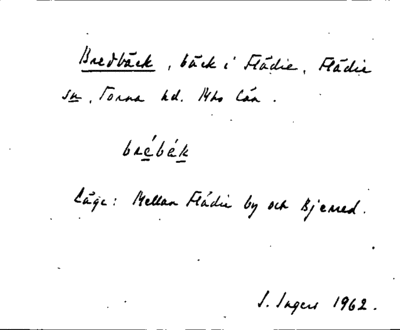 Bredbäck, bäck i Flädie, Flädie
sn, Torna hd. Mhs län.
brèbǽk
Läge: Mellan Flädie by och Bjerred.
I. Ingers 1962.